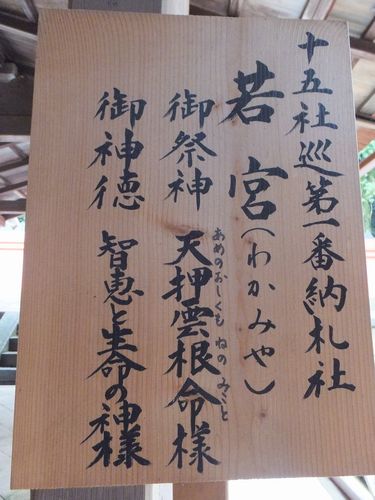 十五社巡第一番納札社
若宮(わかみや)
御祭神 天押雲根命様
あめのおしくも ねの みこと
御神徳 智恵と生命の神様